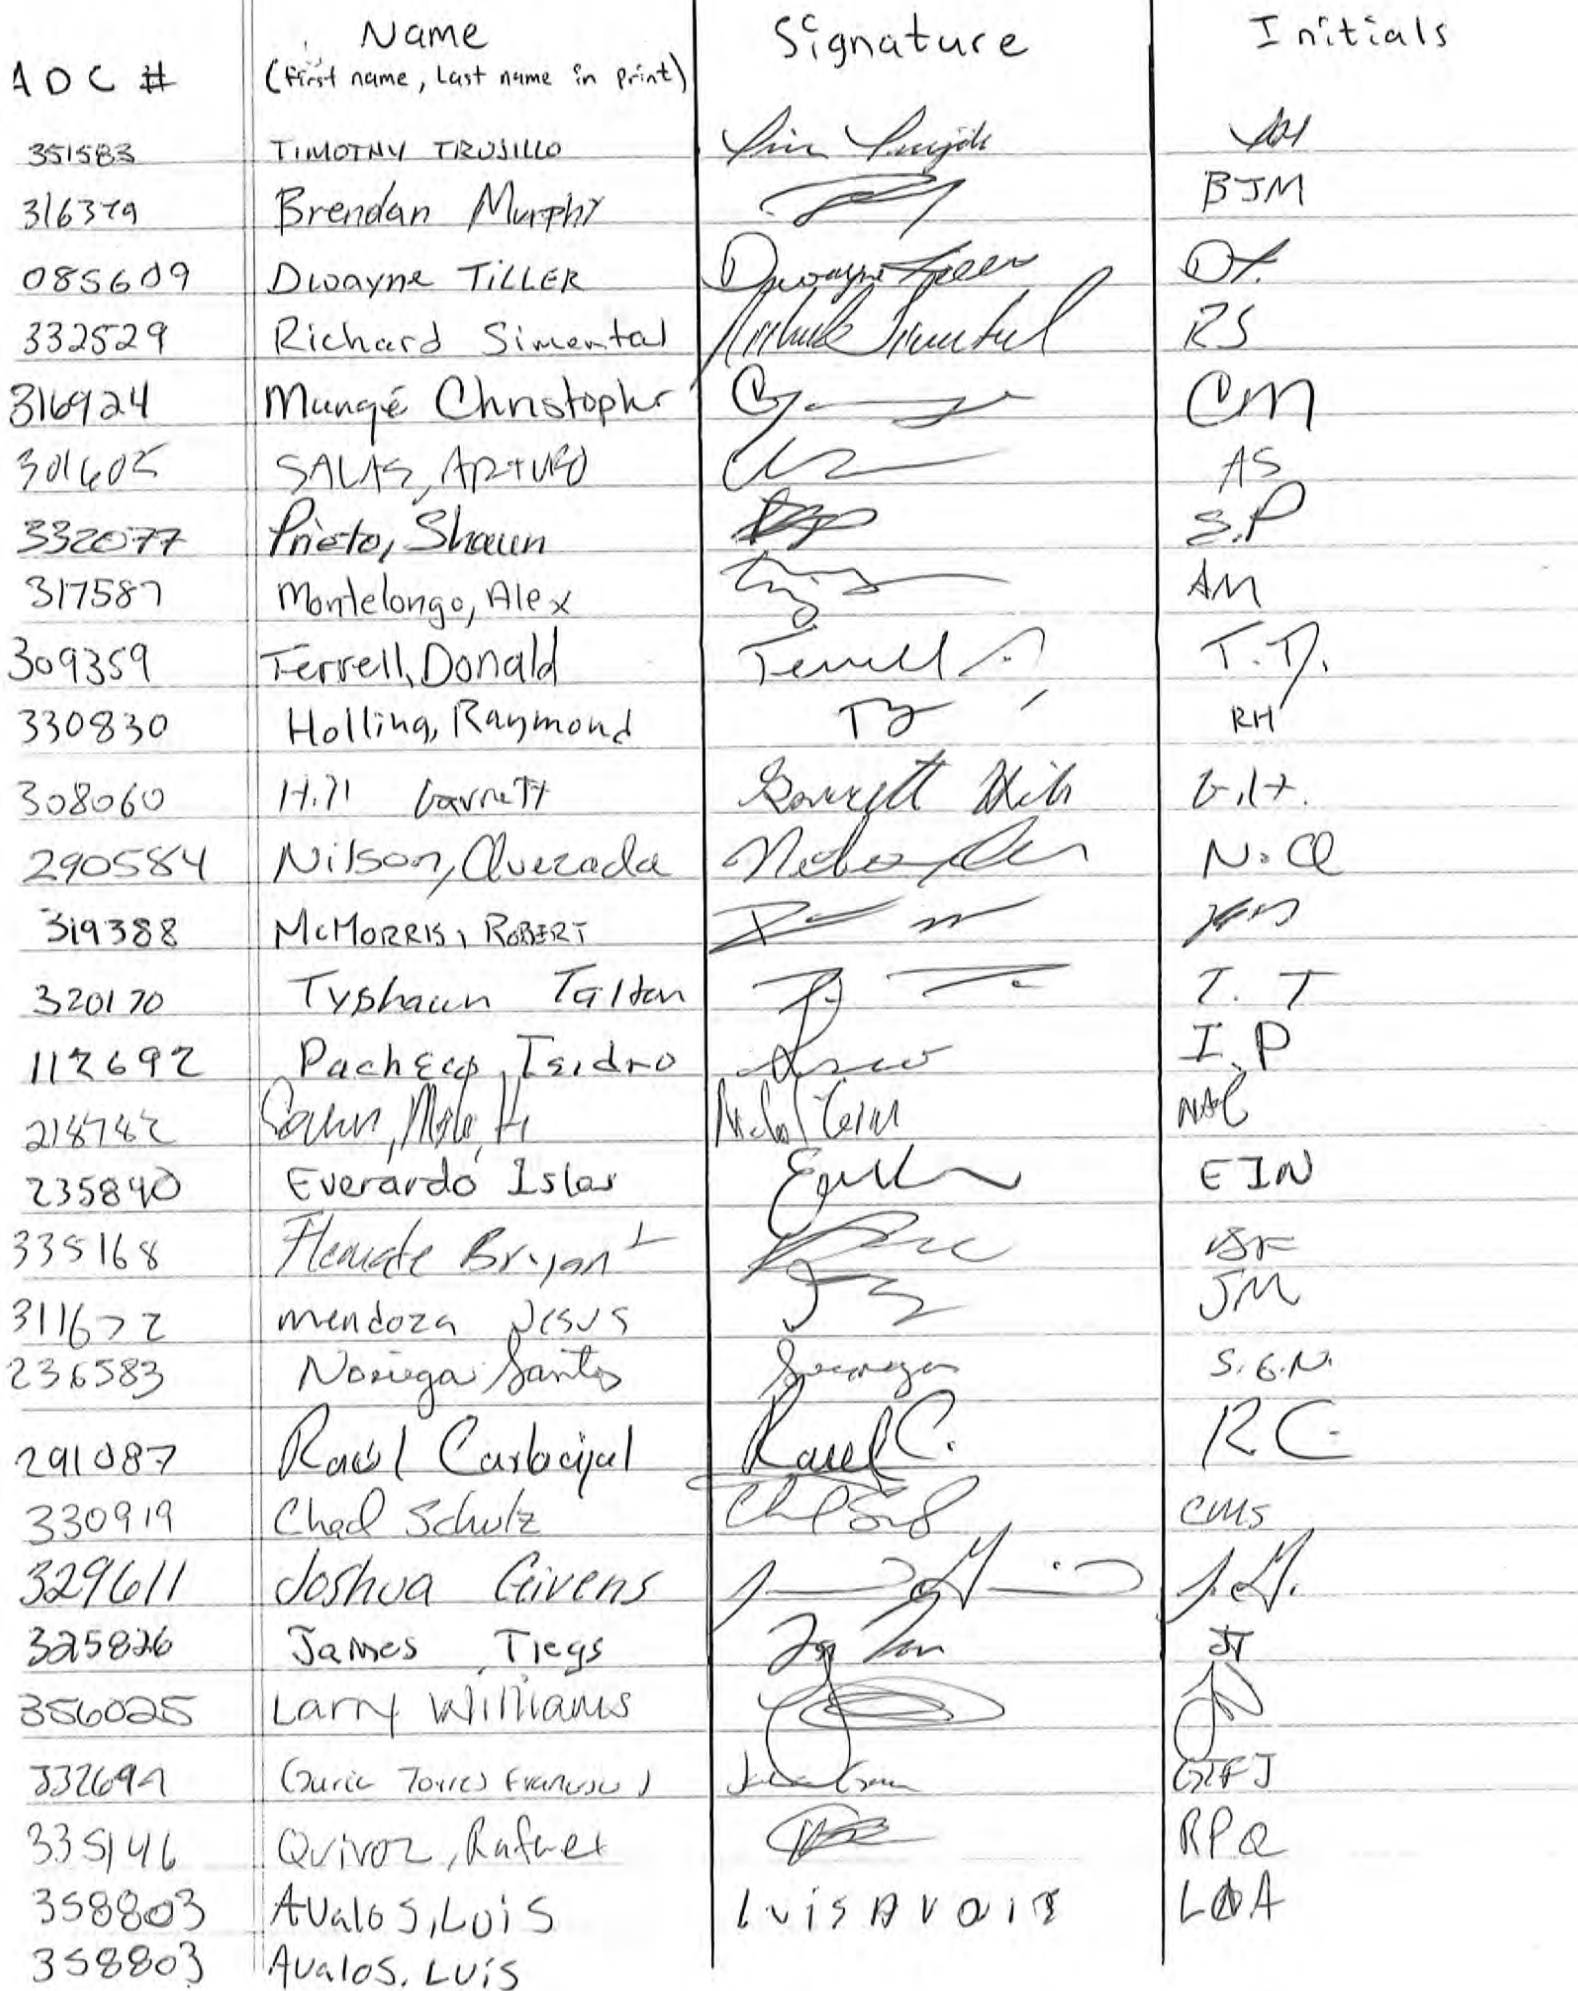 Name Signature Initials
ADC # (first name, Last name in print)
351583 TIMOTHY TRUJILLO
316379 Brendan Murphy BJM
085609 Dwayne TILLER Dwayne DT.
332529 Richard Simental Richard Simental RS
316924 Mungé Christopher CM
301605 SALAS, ARTURO AS
332077 Prieto, Shaun S.P
317587 Montelongo, Alex AM
309359 Terrell, Donald Terrell T.D.
330830 Holling, Raymond RH
308060 Hill Garrett Garrett Hill G.H.
290584 Nilson, Quezada N.Q
319388 McMORRIS, ROBERT
320170 Tyshaun Talton T. T
112692 Pacheco, Isidro I.P
218782
235840 Everardo Islas EIN
335168 Bryant BF
311672 mendoza Jesus JM
236583 Noriega Santos S.G.N.
291087 Raul Carbajal Raul C. R.C.
330919 Chad Schulz CMS
329611 Joshua Givens J.G.
325826 James Tiegs JT
356025 Larry Williams
332694 Torres GTFJ
335146 Quiroz, Rafael RPQ
358803 AValos, Luis LuisAvalos LAA
358803 AValos. Luis